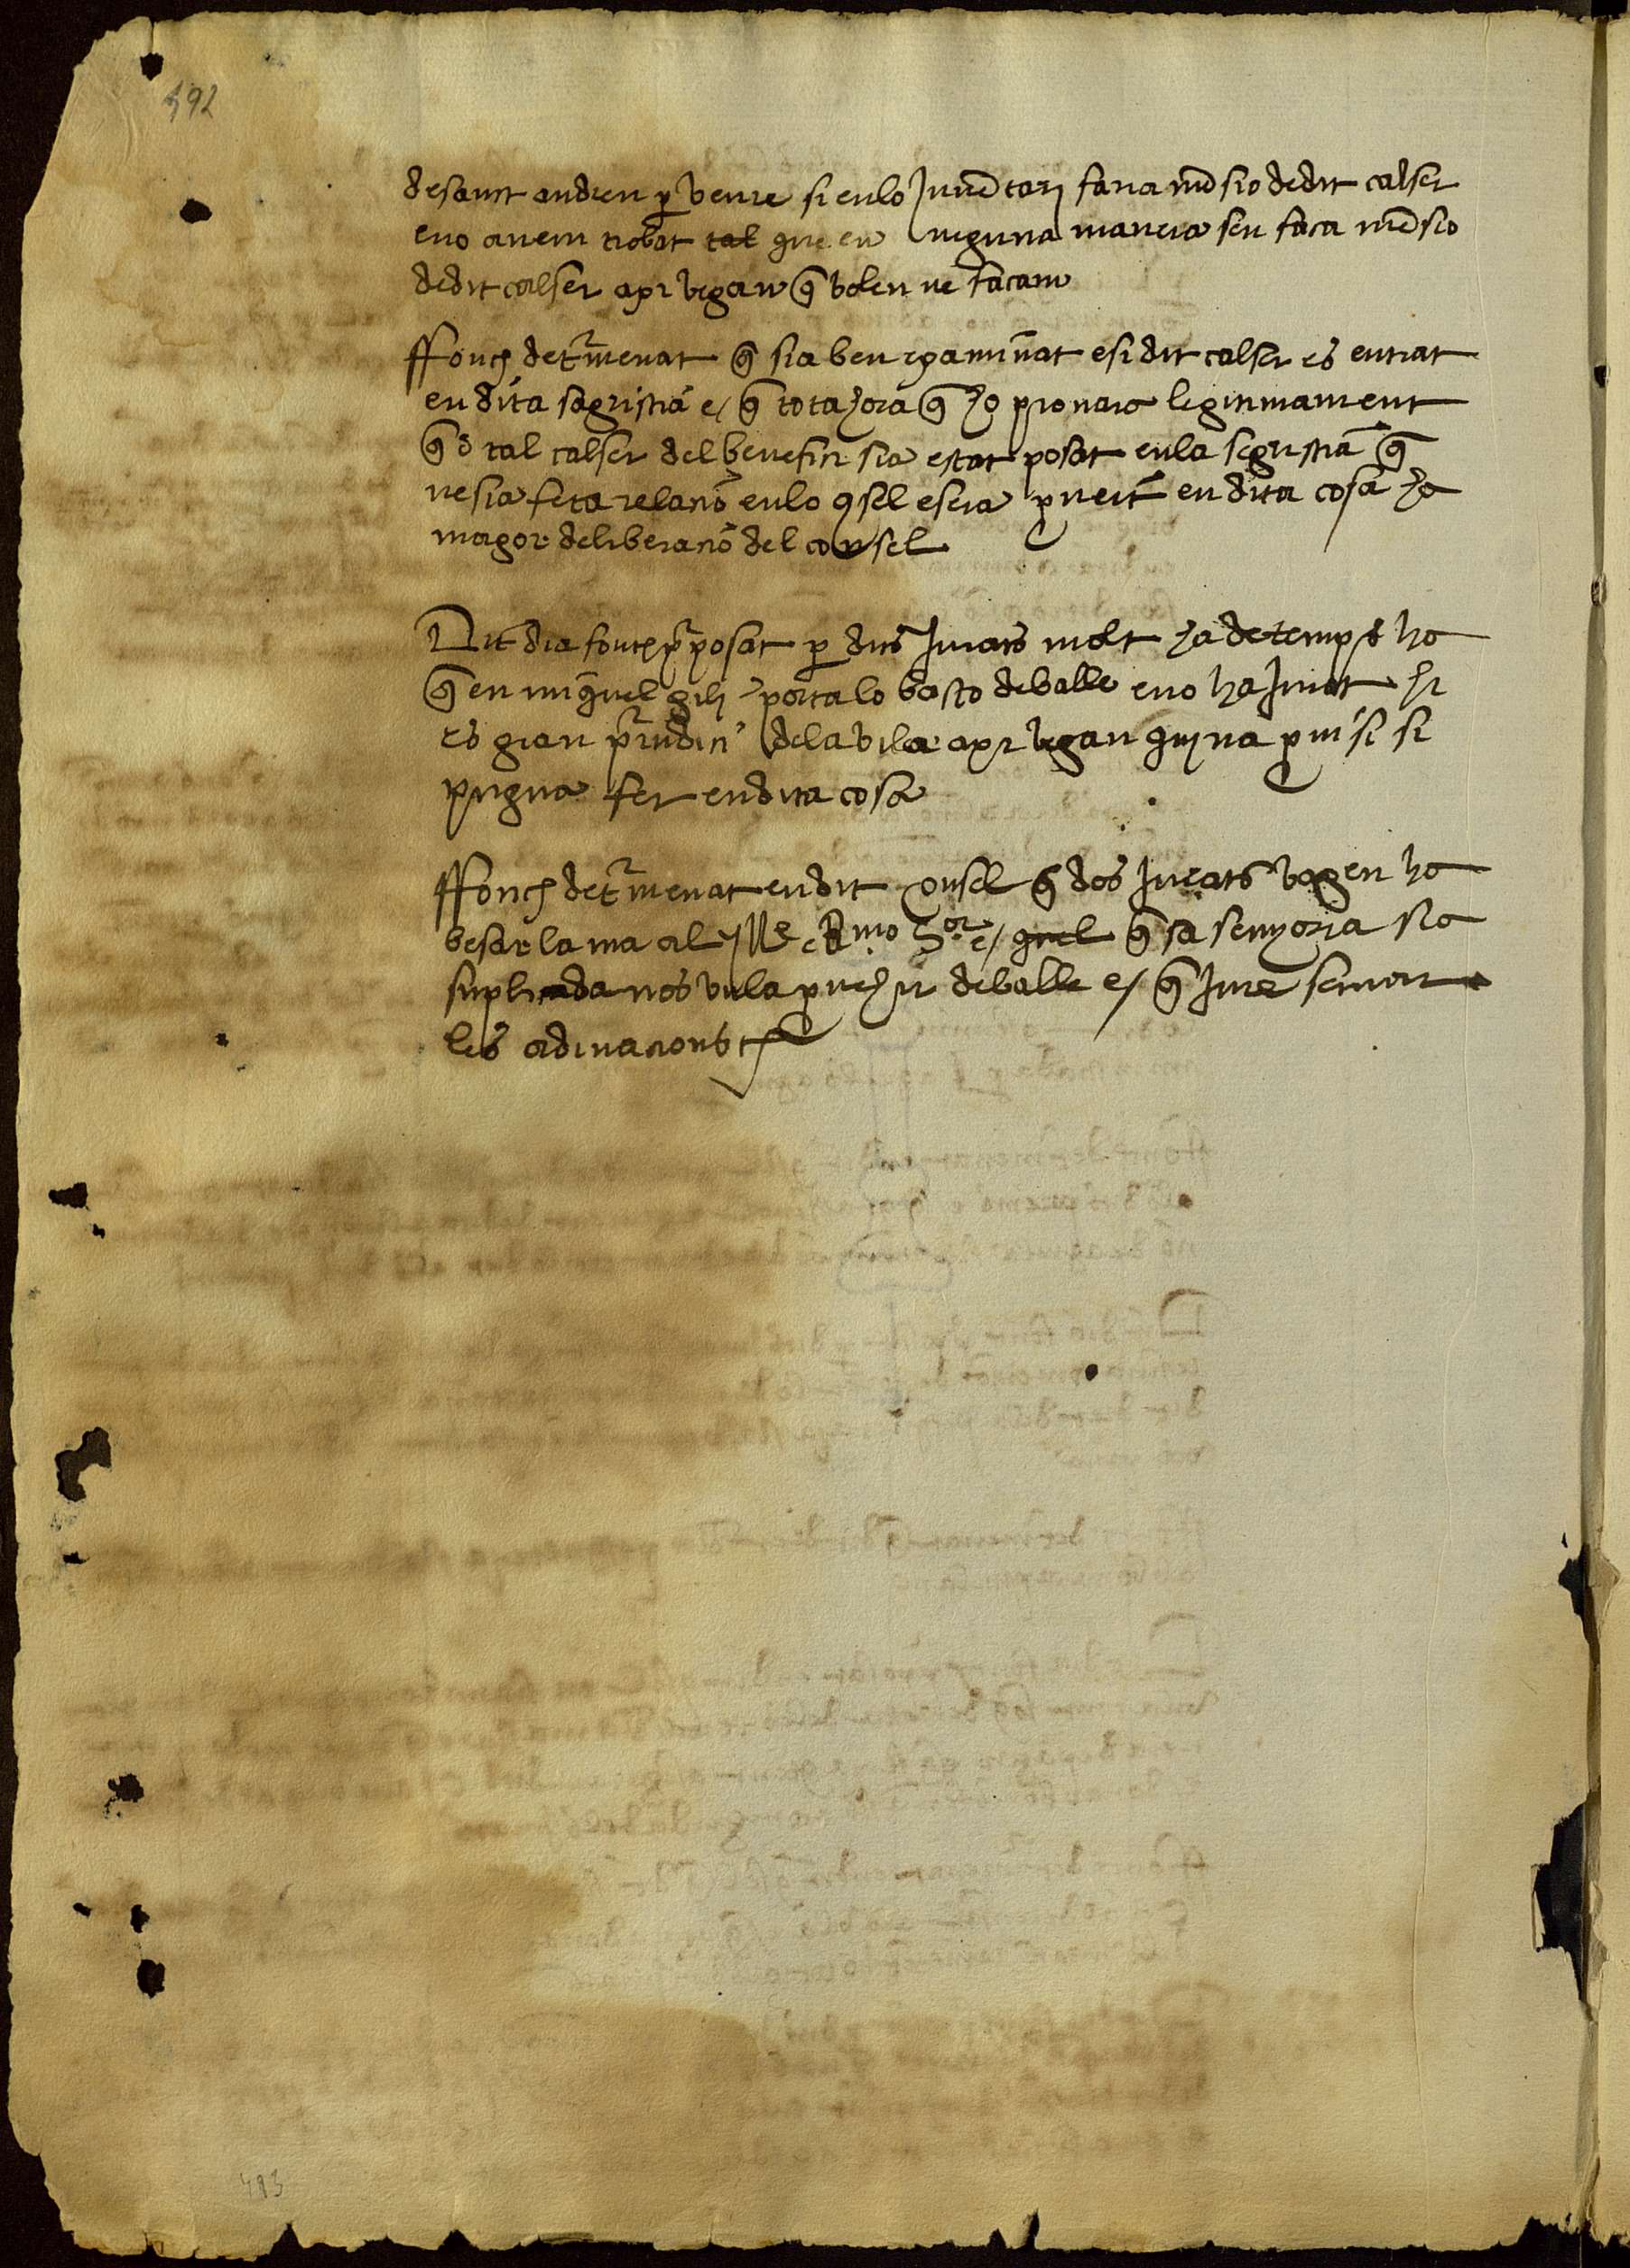 492
de sanct andreu per veure si en lo Inventari faria mensio de dit calser
e no avem trobat tal que en neguna manera sen faca mensio
de dit calser axi vegau que volen ne facam
ffonch determenat que sia ben examinat e si dit calser es entrat
en dita sagristia e que tota hora que ho provara legitimament
que tal calser del benefici sia estat posat en la segristia que
ne sia feta relacio en lo consel e sera proveit en dita cosa ha
magor deliberacio del consel
Dit dia fonch proposat per dits Jurats molt ha de temps ha
que en miquel gili porta lo basto de balle e no ha Jurat hi
es gran prejudici de la vila axi vegau quina provisi si
pugna fer en dita cosa
ffonch determenat en dit consel que dos Jurats vagen ha
besar la ma al Ille e Rmo Sor e quel que sa senyoria sia
suplicada nos vula provehir de balle e que Jure servar
les ordinacions
493